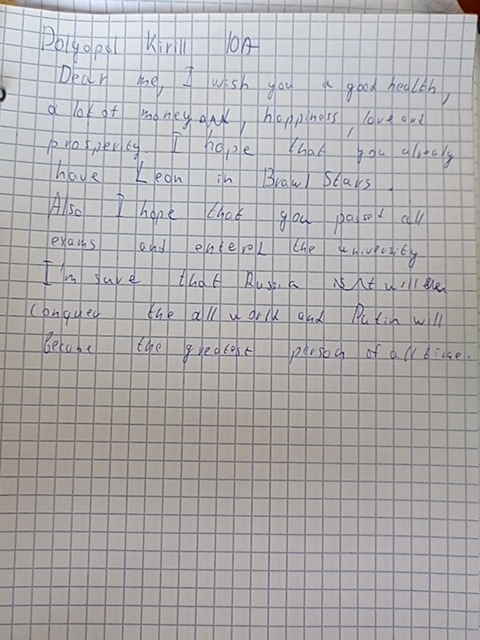 Dolgopol Kirill 10A
Dear me, I wish you a good health,
a lot of money, happiness, love and
prosperity. I hope that you already
have Leon in Brawl Stars.
Also I hope that you passed all
exams and entered the university
I'm sure that Russia will
conquer the all world and Putin will
become the greatest person of all time.